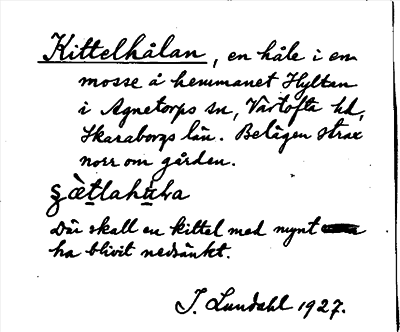 Kittelhålan, en håle i en
mosse å hemmanet Hyltan
i Agnetorps sn, Vartofta hd,
Skaraborgs län. Belägen strax
norr om gården.
Där skall en kittel med mynt
ha blivit nedsänkt.
J. Lundahl 1927.